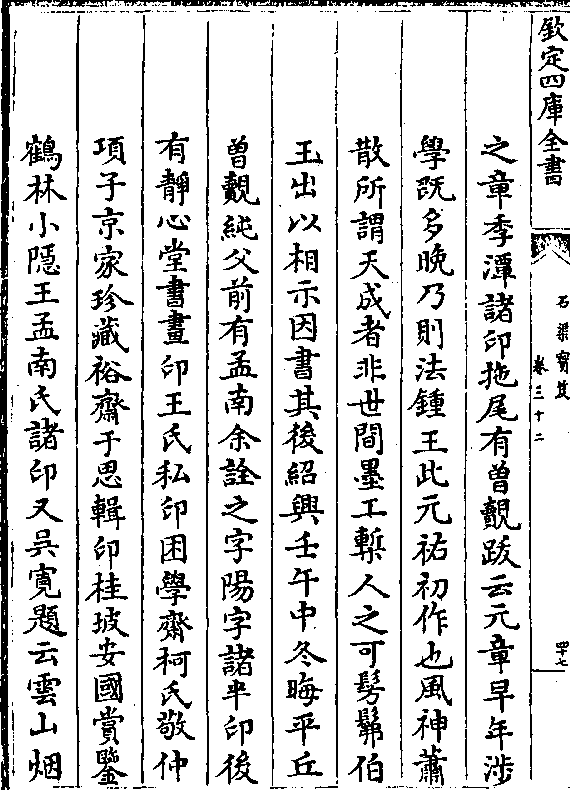 欽定四庫全書
石渠寶笈
卷三十二
四十七
之章季潭諸印拖尾有曾覿跋云元章早年涉
學既多晚乃則法鍾王此元祐初作也風神蕭
散所謂天成者非世間墨工槧人之可髣髴伯
玉出以相示因書其後紹興壬午中冬晦平丘
曾覿純父前有孟南余詮之字陽字諸半印後
有靜心堂書畫印王氏私印困學齋柯氏敬仲
項子京家珍藏裕齋于思輯印桂坡安國賞鑒
鶴林小隱王孟南氏諸印又吳寛題云雲山烟